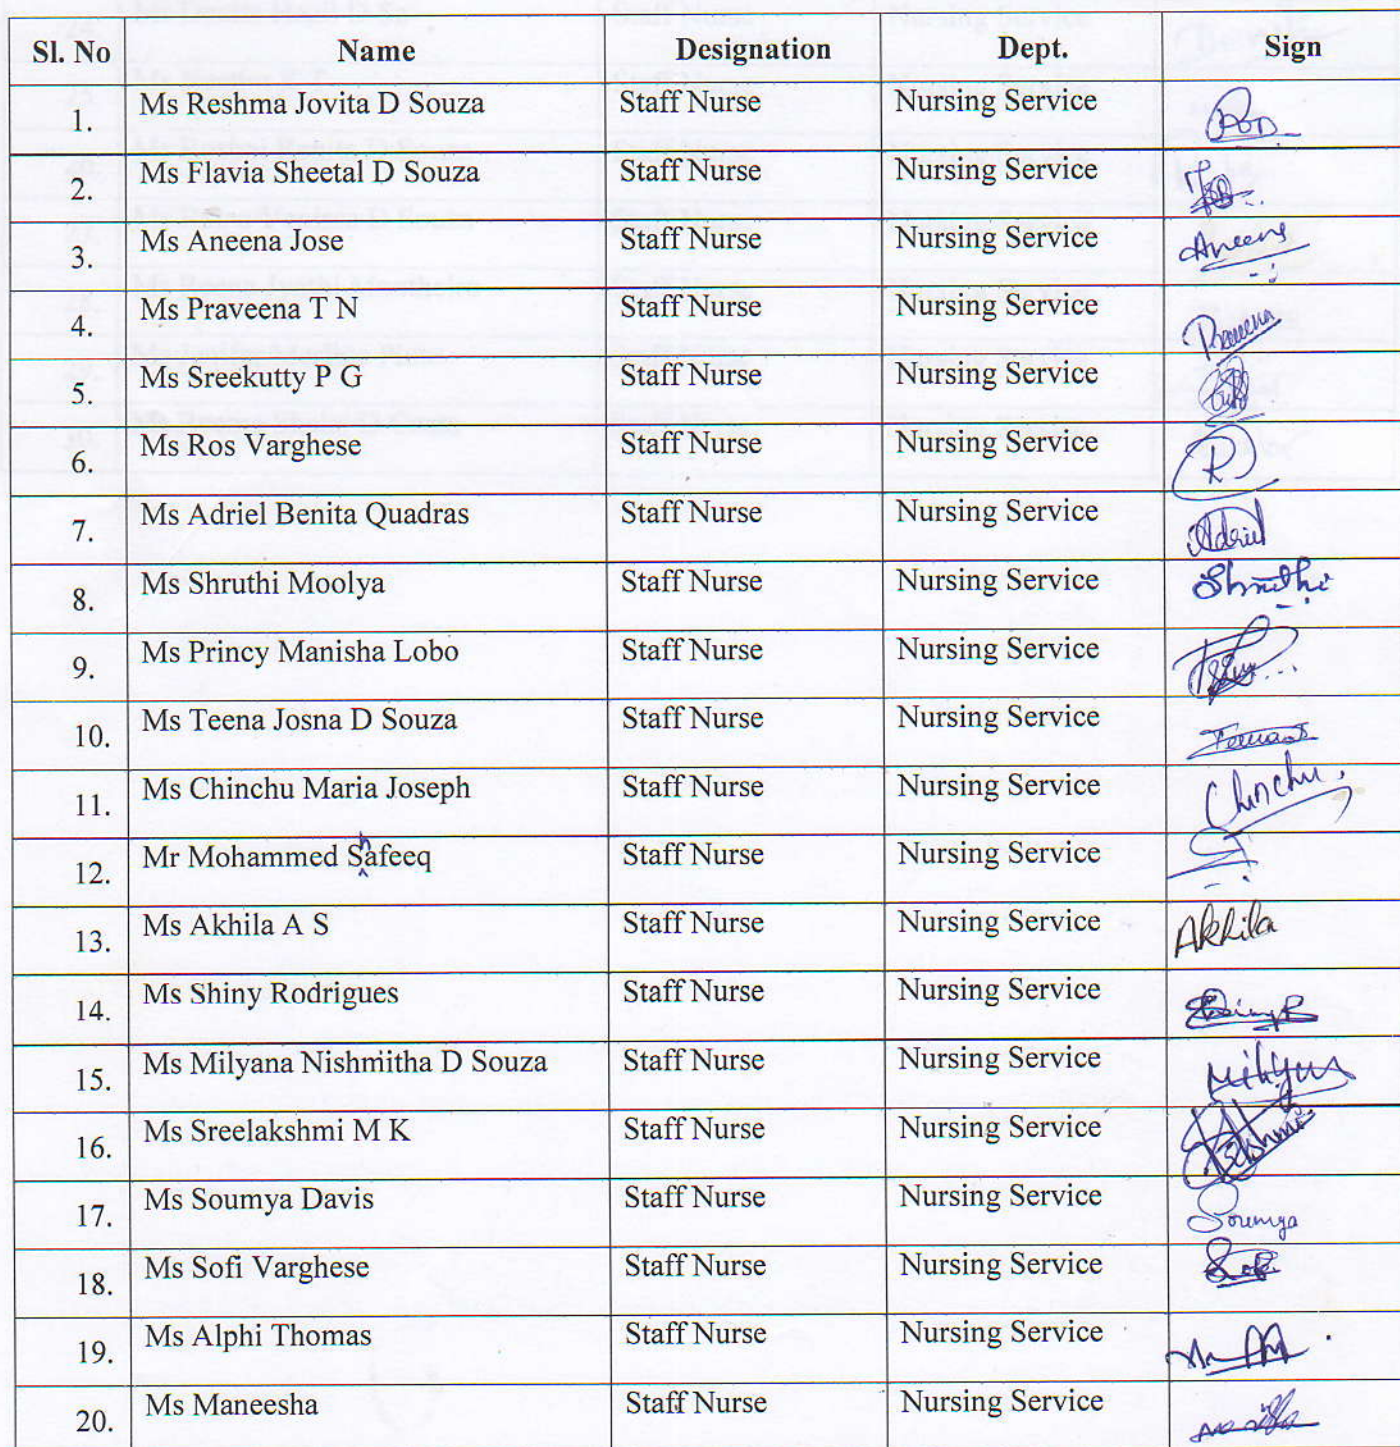 Sl. No Name Designation Dept. Sign
1. Ms Reshma Jovita D Souza Staff Nurse Nursing Service
2. Ms Flavia Sheetal D Souza Staff Nurse Nursing Service
3. Ms Aneena Jose Staff Nurse Nursing Service Aneena
4. Ms Praveena T N Staff Nurse Nursing Service Praveena
5. Ms Sreekutty P G Staff Nurse Nursing Service
6. Ms Ros Varghese Staff Nurse Nursing Service R
7. Ms Adriel Benita Quadras Staff Nurse Nursing Service Adriel
8. Ms Shruthi Moolya Staff Nurse Nursing Service Shruthi
9. Ms Princy Manisha Lobo Staff Nurse Nursing Service
10. Ms Teena Josna D Souza Staff Nurse Nursing Service
11. Ms Chinchu Maria Joseph Staff Nurse Nursing Service Chinchu
12. Mr Mohammed Shafeeq Staff Nurse Nursing Service
13. Ms Akhila A S Staff Nurse Nursing Service Akhila
14. Ms Shiny Rodrigues Staff Nurse Nursing Service Shiny R
15. Ms Milyana Nishmiitha D Souza Staff Nurse Nursing Service
16. Ms Sreelakshmi M K Staff Nurse Nursing Service
17. Ms Soumya Davis Staff Nurse Nursing Service Soumya
18. Ms Sofi Varghese Staff Nurse Nursing Service Sofi
19. Ms Alphi Thomas Staff Nurse Nursing Service
20. Ms Maneesha Staff Nurse Nursing Service